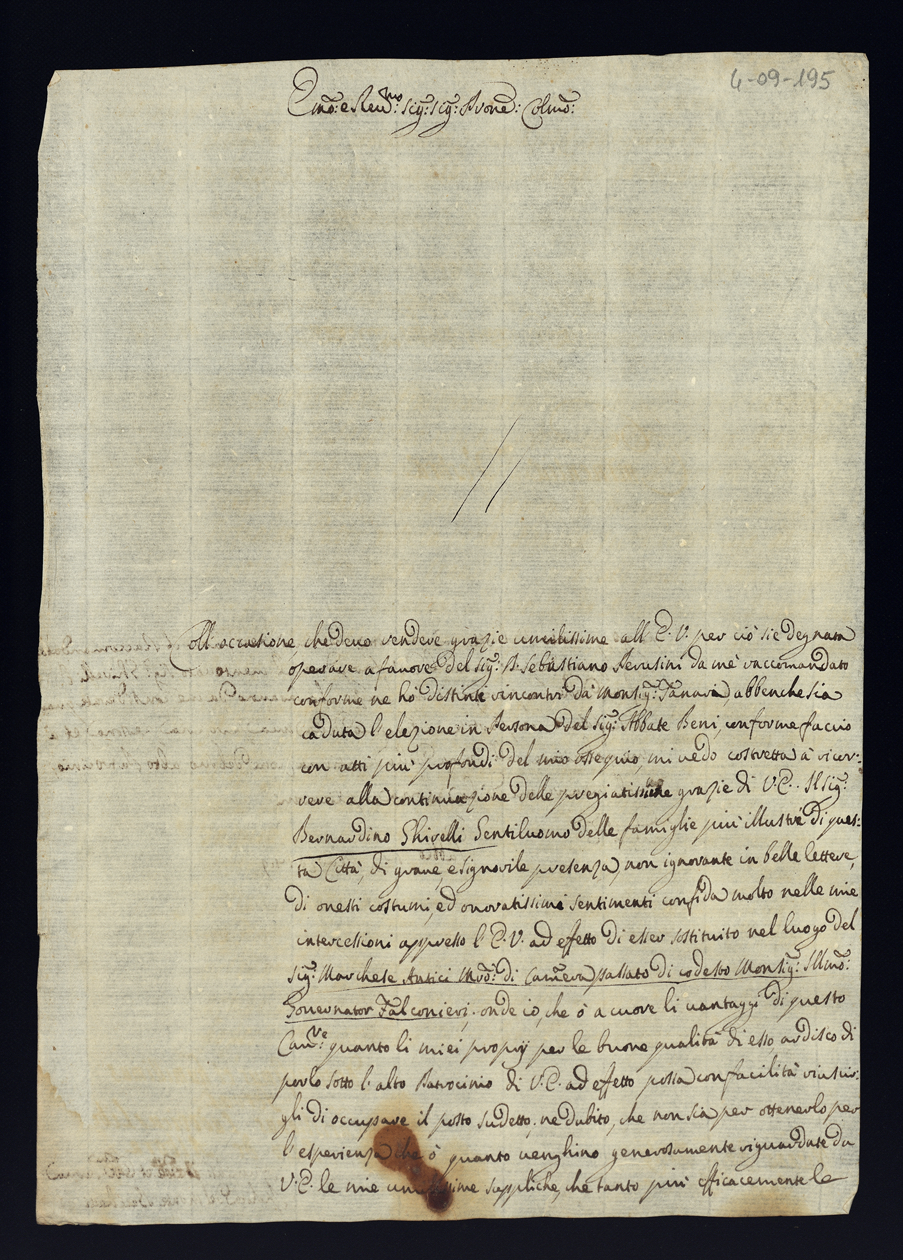 4-09-195
Emo: e Revmo: Sig: Sig: Prone: Colmo:
Coll' occasione che devo rendere grazie umilissime all' E. V. per ciò si è degnata
operare a favore del Sig: D. Sebastiano Perusini da me raccomandato
conforme ne hò distinti rincontri da Monsig: Tanara, abbenche sia
caduta l'elezione in Persona del Sig: Abbate Beni, conforme faccio
con atti più profondi del mio ossequio, mi vedo costretta à ricor:
rere alla continuazione delle pregiatissime grazie di V. E. Il Sig:
Bernardino Ghivelli Gentiluomo delle famiglie più illustri di ques:
ta Città, di grave, e signorile presenza, non ignorante in belle lettere,
di onesti costumi, ed onoratissimi sentimenti confida molto nelle mie
intercessioni appresso l'E. V. ad effetto di esser sostituito nel luogo del
Sig: Marchese Antici Mro: di Camera passato di codesto Monsig: Illmo:
Governator Falconieri; onde io, che ò a cuore li vantaggi di questo
Cavre: quanto li miei proprj per le buone qualità di esso ardisco di
porlo sotto l'alto Patrocinio di V. E. ad effetto possa con facilità riuscir:
gli di occupare il posto sudetto, ne dubito, che non sia per ottenerlo, per
l'esperienza che ò quanto venghino generosamente riguardate da
V. E. le mie umilissime suppliche, che tanto più efficacemente le